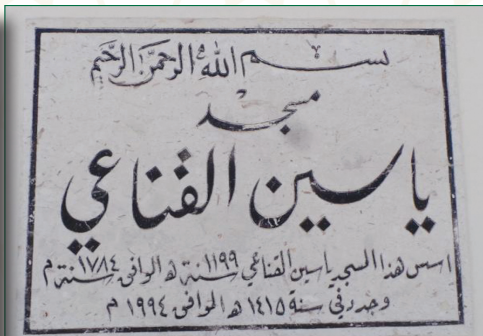 بسم الله الرحمن الرحيم
مسجد
ياسين القناعي
اسس هذا المسجد ياسين القناعي سنة ١١٩٩ ه الوافق سنة ١٧٨٤ م
وجدد في سنة ١٤١٥ ه الموافق ١٩٩٤ م